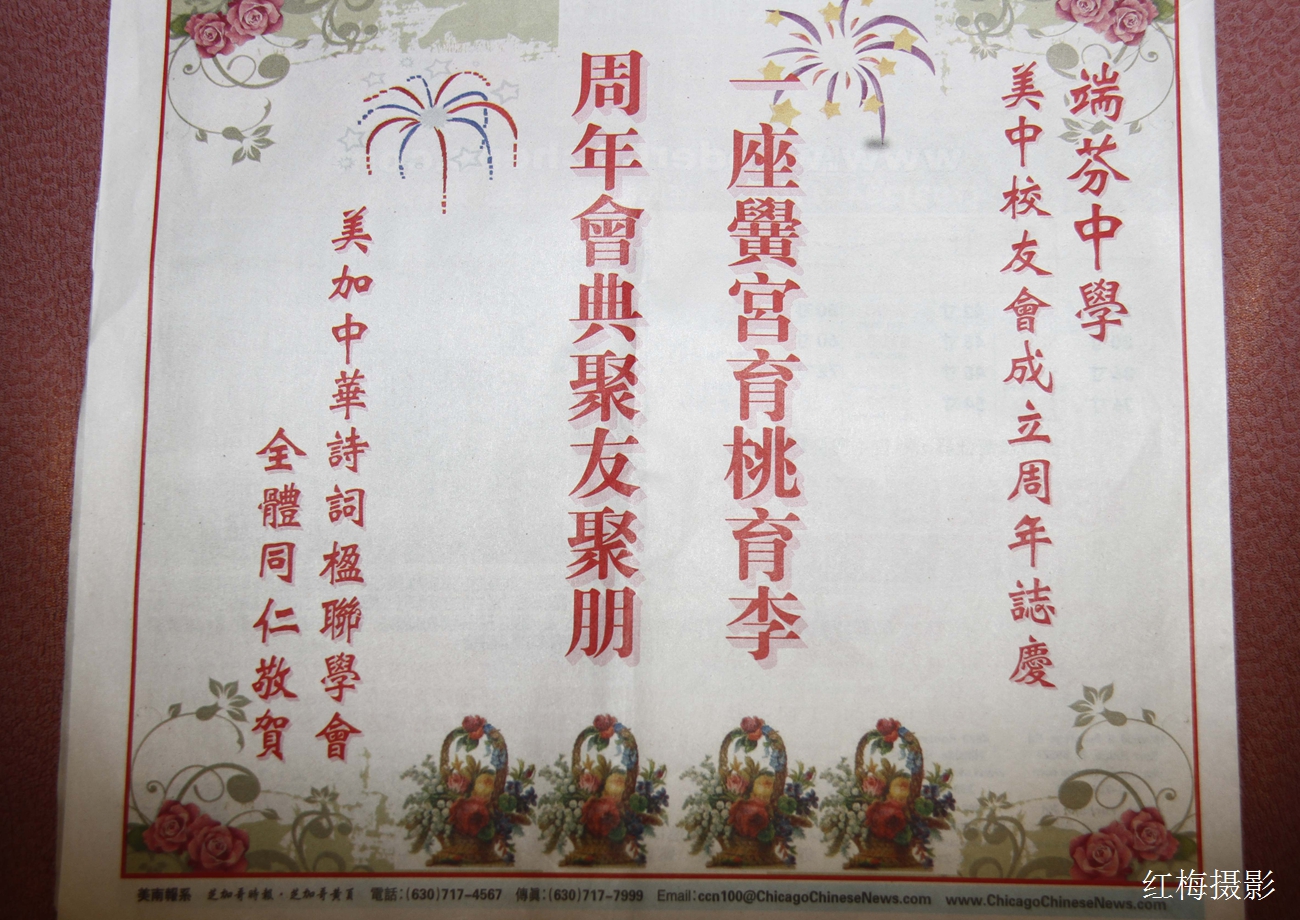 端芬中學
美中校友會成立周年誌慶
一座黌宮育桃育李
周年會典聚友聚朋
美加中華詩詞楹聯學會
全體同仁敬賀
美南報系 芝加哥時報·芝加哥黃頁 電話:(630)717-4567 傳眞:(630)717-7999 Email:ccn100@ChicagoChineseNews.com www.ChicagoChineseNews.com
红梅摄影